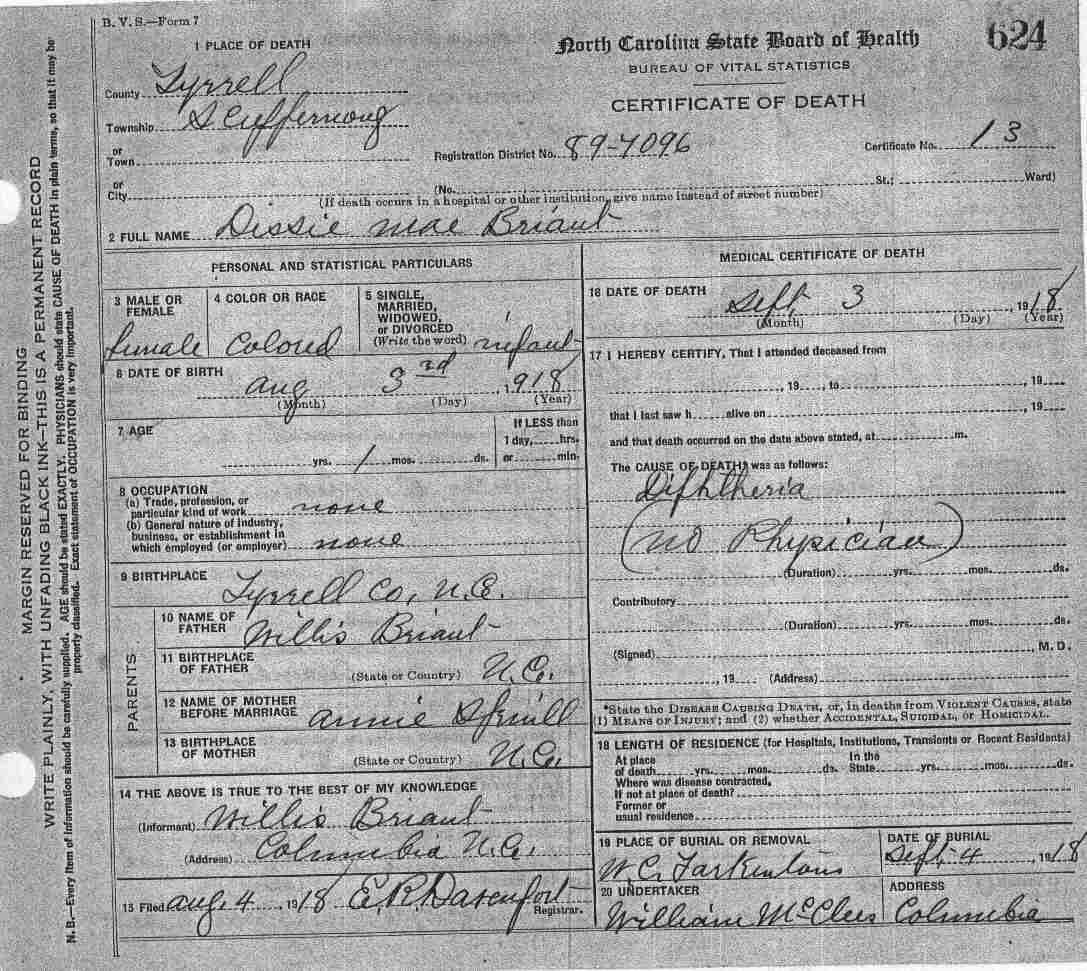 B. V. S.—Form 7
624
North Carolina State Board of Health
BUREAU OF VITAL STATISTICS
CERTIFICATE OF DEATH
1 PLACE OF DEATH
County Tyrrell
Township Scuppernong
or
Town
Registration District No. 89-7096 Certificate No. 13
or
City (No. St.; Ward)
(If death occurs in a hospital or other institution, give name instead of street number)
2 FULL NAME Dissie Mae Briant
PERSONAL AND STATISTICAL PARTICULARS
3 MALE OR FEMALE female
4 COLOR OR RACE Colored
5 SINGLE, MARRIED, WIDOWED, or DIVORCED (Write the word) infant
6 DATE OF BIRTH Aug 3rd, 1918
(Month) (Day) (Year)
7 AGE
yrs. 1 mos. ds.
If LESS than
1 day, hrs.
or min.
8 OCCUPATION
(a) Trade, profession, or
particular kind of work none
(b) General nature of industry,
business, or establishment in
which employed (or employer) none
9 BIRTHPLACE Tyrrell Co, N.C.
PARENTS
10 NAME OF FATHER Willis Briant
11 BIRTHPLACE OF FATHER (State or Country) N.C.
12 NAME OF MOTHER BEFORE MARRIAGE Annie Spruill
13 BIRTHPLACE OF MOTHER (State or Country) N.C.
14 THE ABOVE IS TRUE TO THE BEST OF MY KNOWLEDGE
(Informant) Willis Briant
(Address) Columbia N.C.
15 Filed Aug 4, 1918 E. R. Davenport
Registrar.
MEDICAL CERTIFICATE OF DEATH
16 DATE OF DEATH Sept 3, 1918
(Month) (Day) (Year)
17 I HEREBY CERTIFY, That I attended deceased from
, 19 , to , 19
that I last saw h alive on , 19
and that death occurred on the date above stated, at m.
The CAUSE OF DEATH* was as follows:
Diphtheria
(No Physician)
(Duration) yrs. mos. ds.
Contributory
(Duration) yrs. mos. ds.
(Signed) , M. D.
, 19 (Address)
*State the DISEASE CAUSING DEATH, or, in deaths from VIOLENT CAUSES, state
(1) MEANS OF INJURY; and (2) whether ACCIDENTAL, SUICIDAL, or HOMICIDAL.
18 LENGTH OF RESIDENCE (for Hospitals, Institutions, Transients or Recent Residents)
At place In the
of death yrs. mos. ds. State yrs. mos. ds.
Where was disease contracted,
If not at place of death?
Former or
usual residence
19 PLACE OF BURIAL OR REMOVAL W. C. Tarkentons
DATE OF BURIAL Sept 4, 1918
20 UNDERTAKER William McClees
ADDRESS Columbia
MARGIN RESERVED FOR BINDING
WRITE PLAINLY, WITH UNFADING BLACK INK—THIS IS A PERMANENT RECORD
N. B.—Every item of information should be carefully supplied. AGE should be stated EXACTLY. PHYSICIANS should state CAUSE OF DEATH in plain terms, so that it may be
properly classified. Exact statement of OCCUPATION is very important.